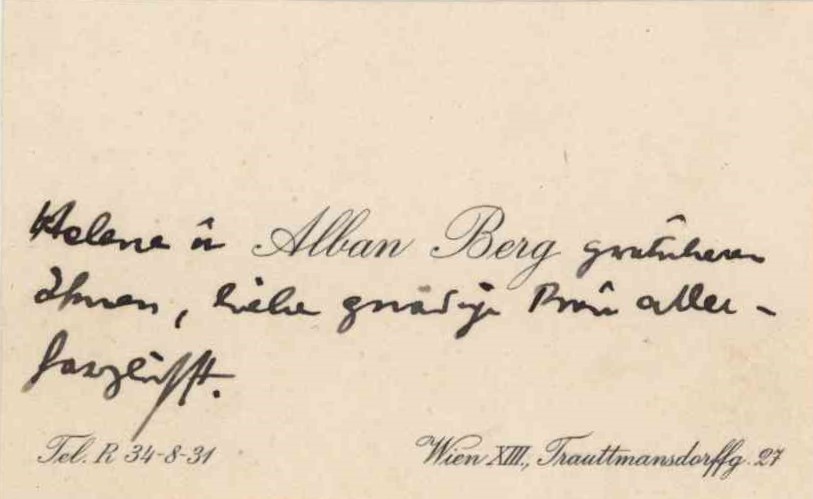 Helene u Alban Berg gratulieren
Ihnen, liebe gnädige Frau aller-
herzlichst.
Tel. R 34-8-31
Wien XIII., Trauttmansdorffg. 27